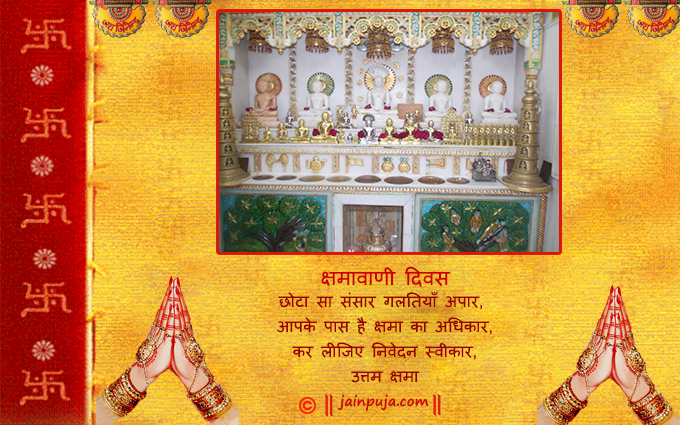 क्षमावाणी दिवस
छोटा सा संसार गलतियाँ अपार,
आपके पास है क्षमा का अधिकार,
कर लीजिए निवेदन स्वीकार,
उत्तम क्षमा
© || jainpuja.com ||